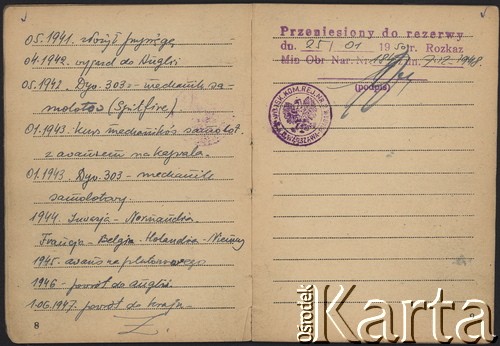 05.1941. złożył przysięgę
04.1942. wyjazd do Anglii
05.1942. Dyo. 303 - mechanik sa-
molotów (Spitfire).
01.1943. kurs mechaników samolot.
z awansem na kaprala.
01.1943. Dyo. 303 - mechanik
samolotowy.
1944. Inwazja - Normandia.
Francja - Belgia - Holandia - Niemcy
1945. awans na plutonowego
1946 - powrót do Anglii.
1.06.1947. powrót do kraju -
8
Przeniesiony do rezerwy
dn. 25/01 1950r. Rozkaz
Min Obr Nar. Nr. dn. 7.12.1948.
(podpis)
WOJSK. KOM. REJ. NR
WARSZAWA
9
Ośrodek
Karta